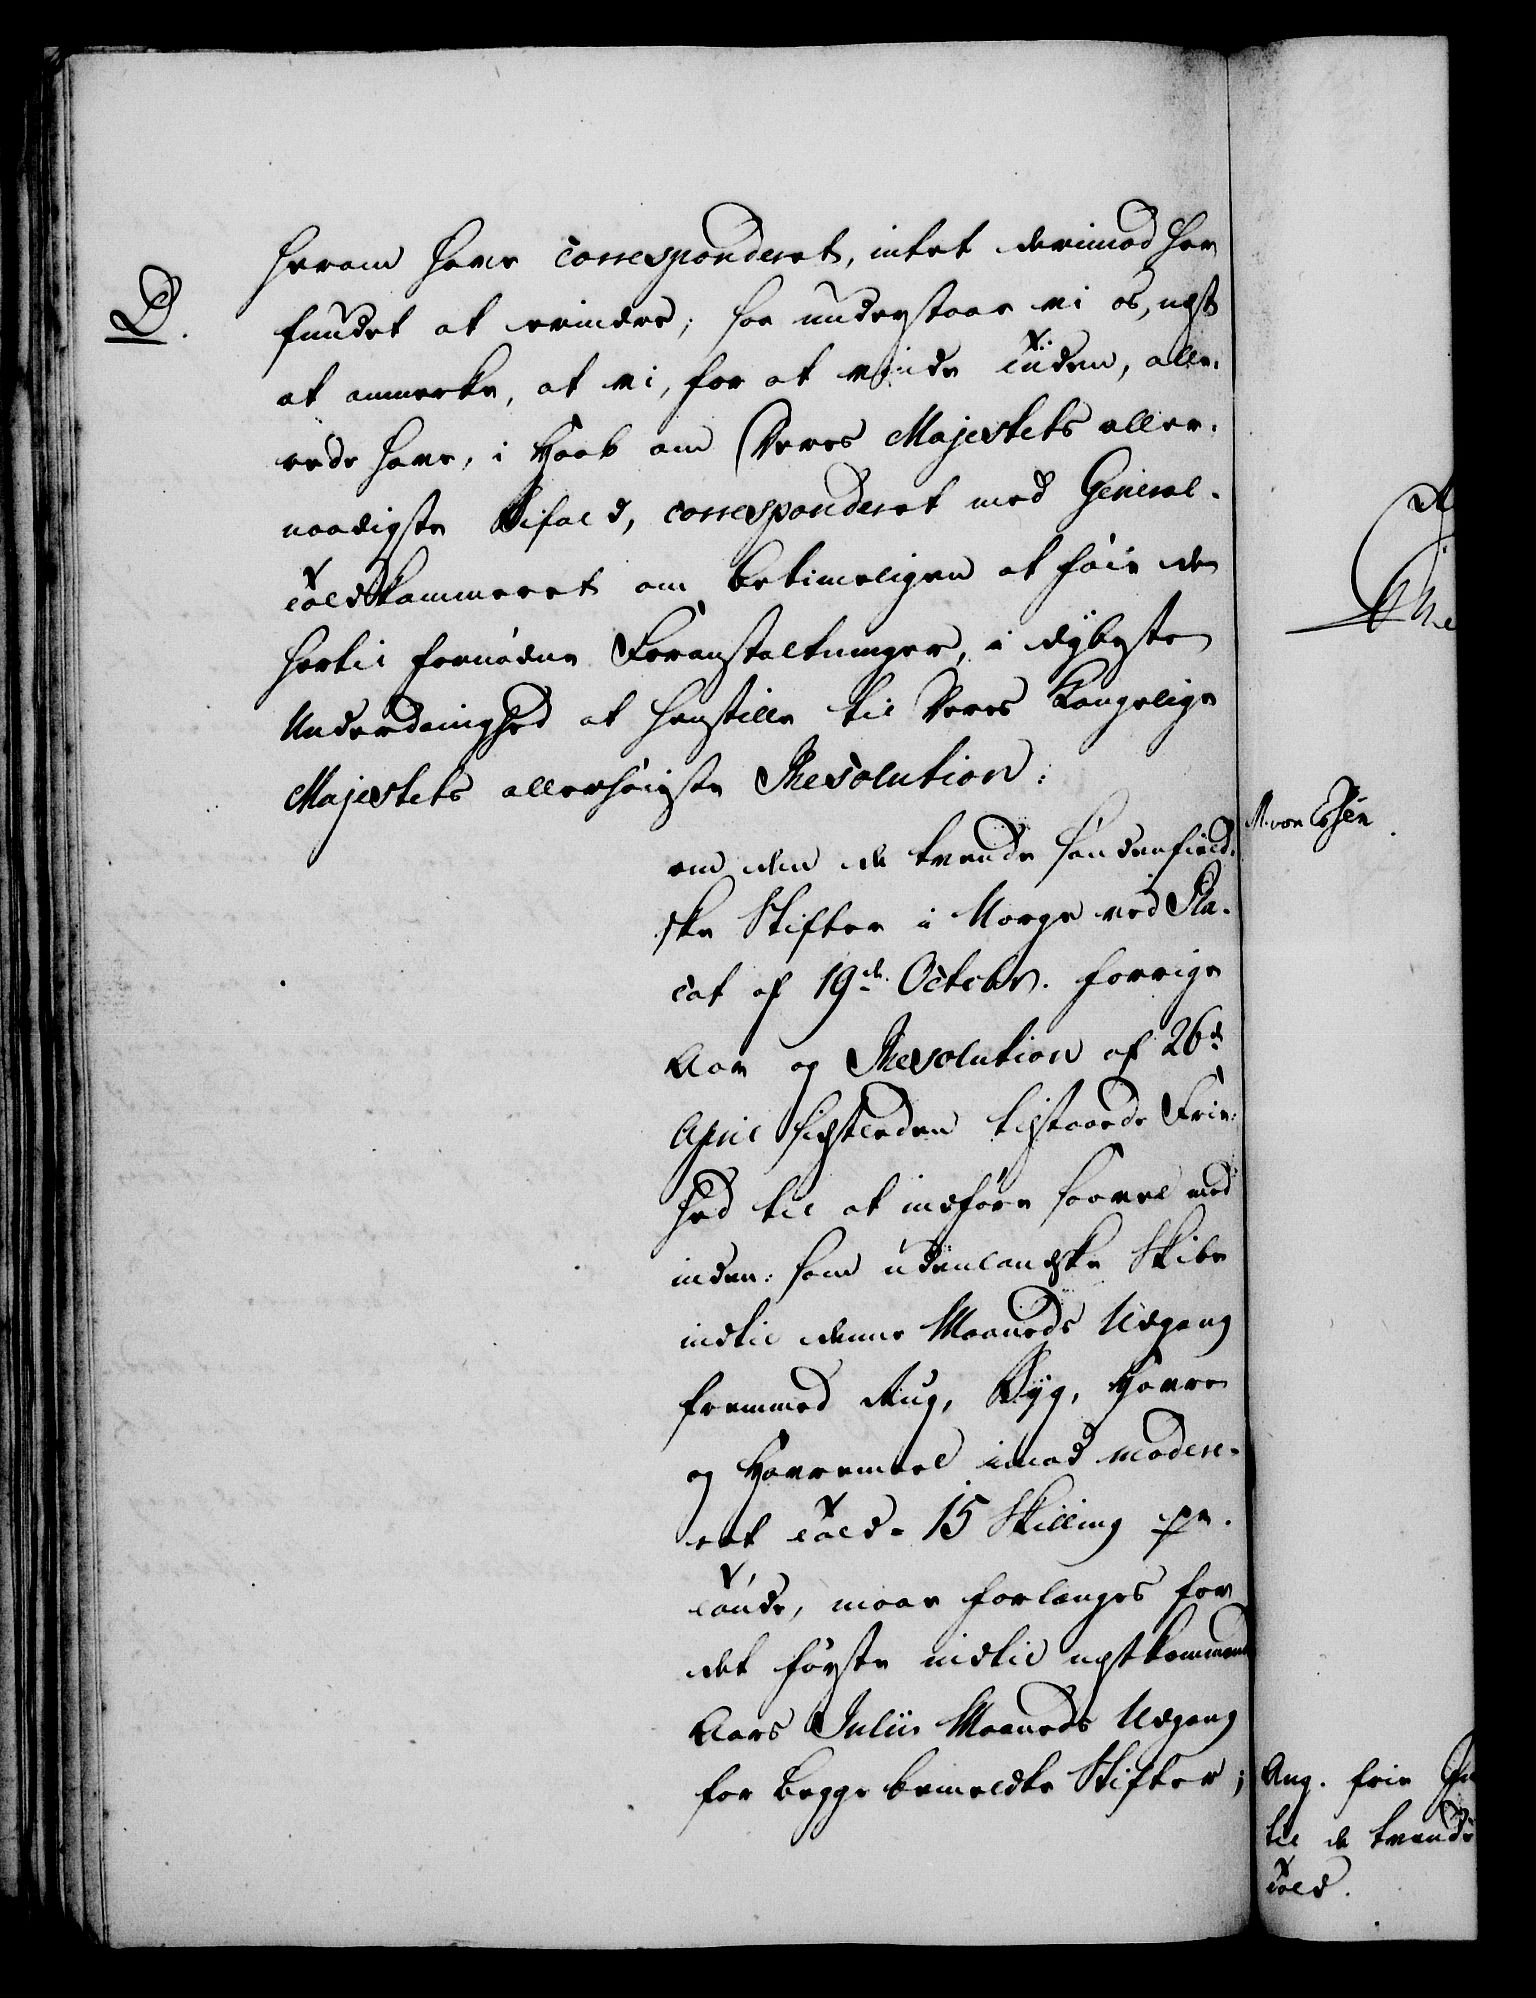 D.
herom have correspondent, intet derimod har
fundet at erindre; saa understaae vi os, næst
at anmerke, at vi, for at vinde Tiden, alle-
rede have, i Haab om Deres Majestets aller-
naadigste Bifald, corresponderet med General-
Toldkammeret om betimeligen at føie de
hertil fornødne Foranstaltninger, i dybeste
Underdanighed at henstille til Deres Kongelige
Majestets allerhøieste Resolution:
om den de tvende Søndenfield-
ske Stifter i Norge ved Pla-
cat af 19de Octobr. forrige
Aar og Resolution af 26de
April sidstleden tilstaaede Frie-
hed til at indføre saavel med
inden- som udenlandske Skibe
indtil denne Maaneds Udgang
fremmed Rug, Byg, Havre
og Havremeel imod moder-
eret Told 15 Skilling pr.
Tønde, maae forlænges for
det første indtil næstkommende
Aars Julii Maaneds Udgang
for begge bemeldte Stifter;
R. von Essen
Ang. frie
til de tvende
Told.